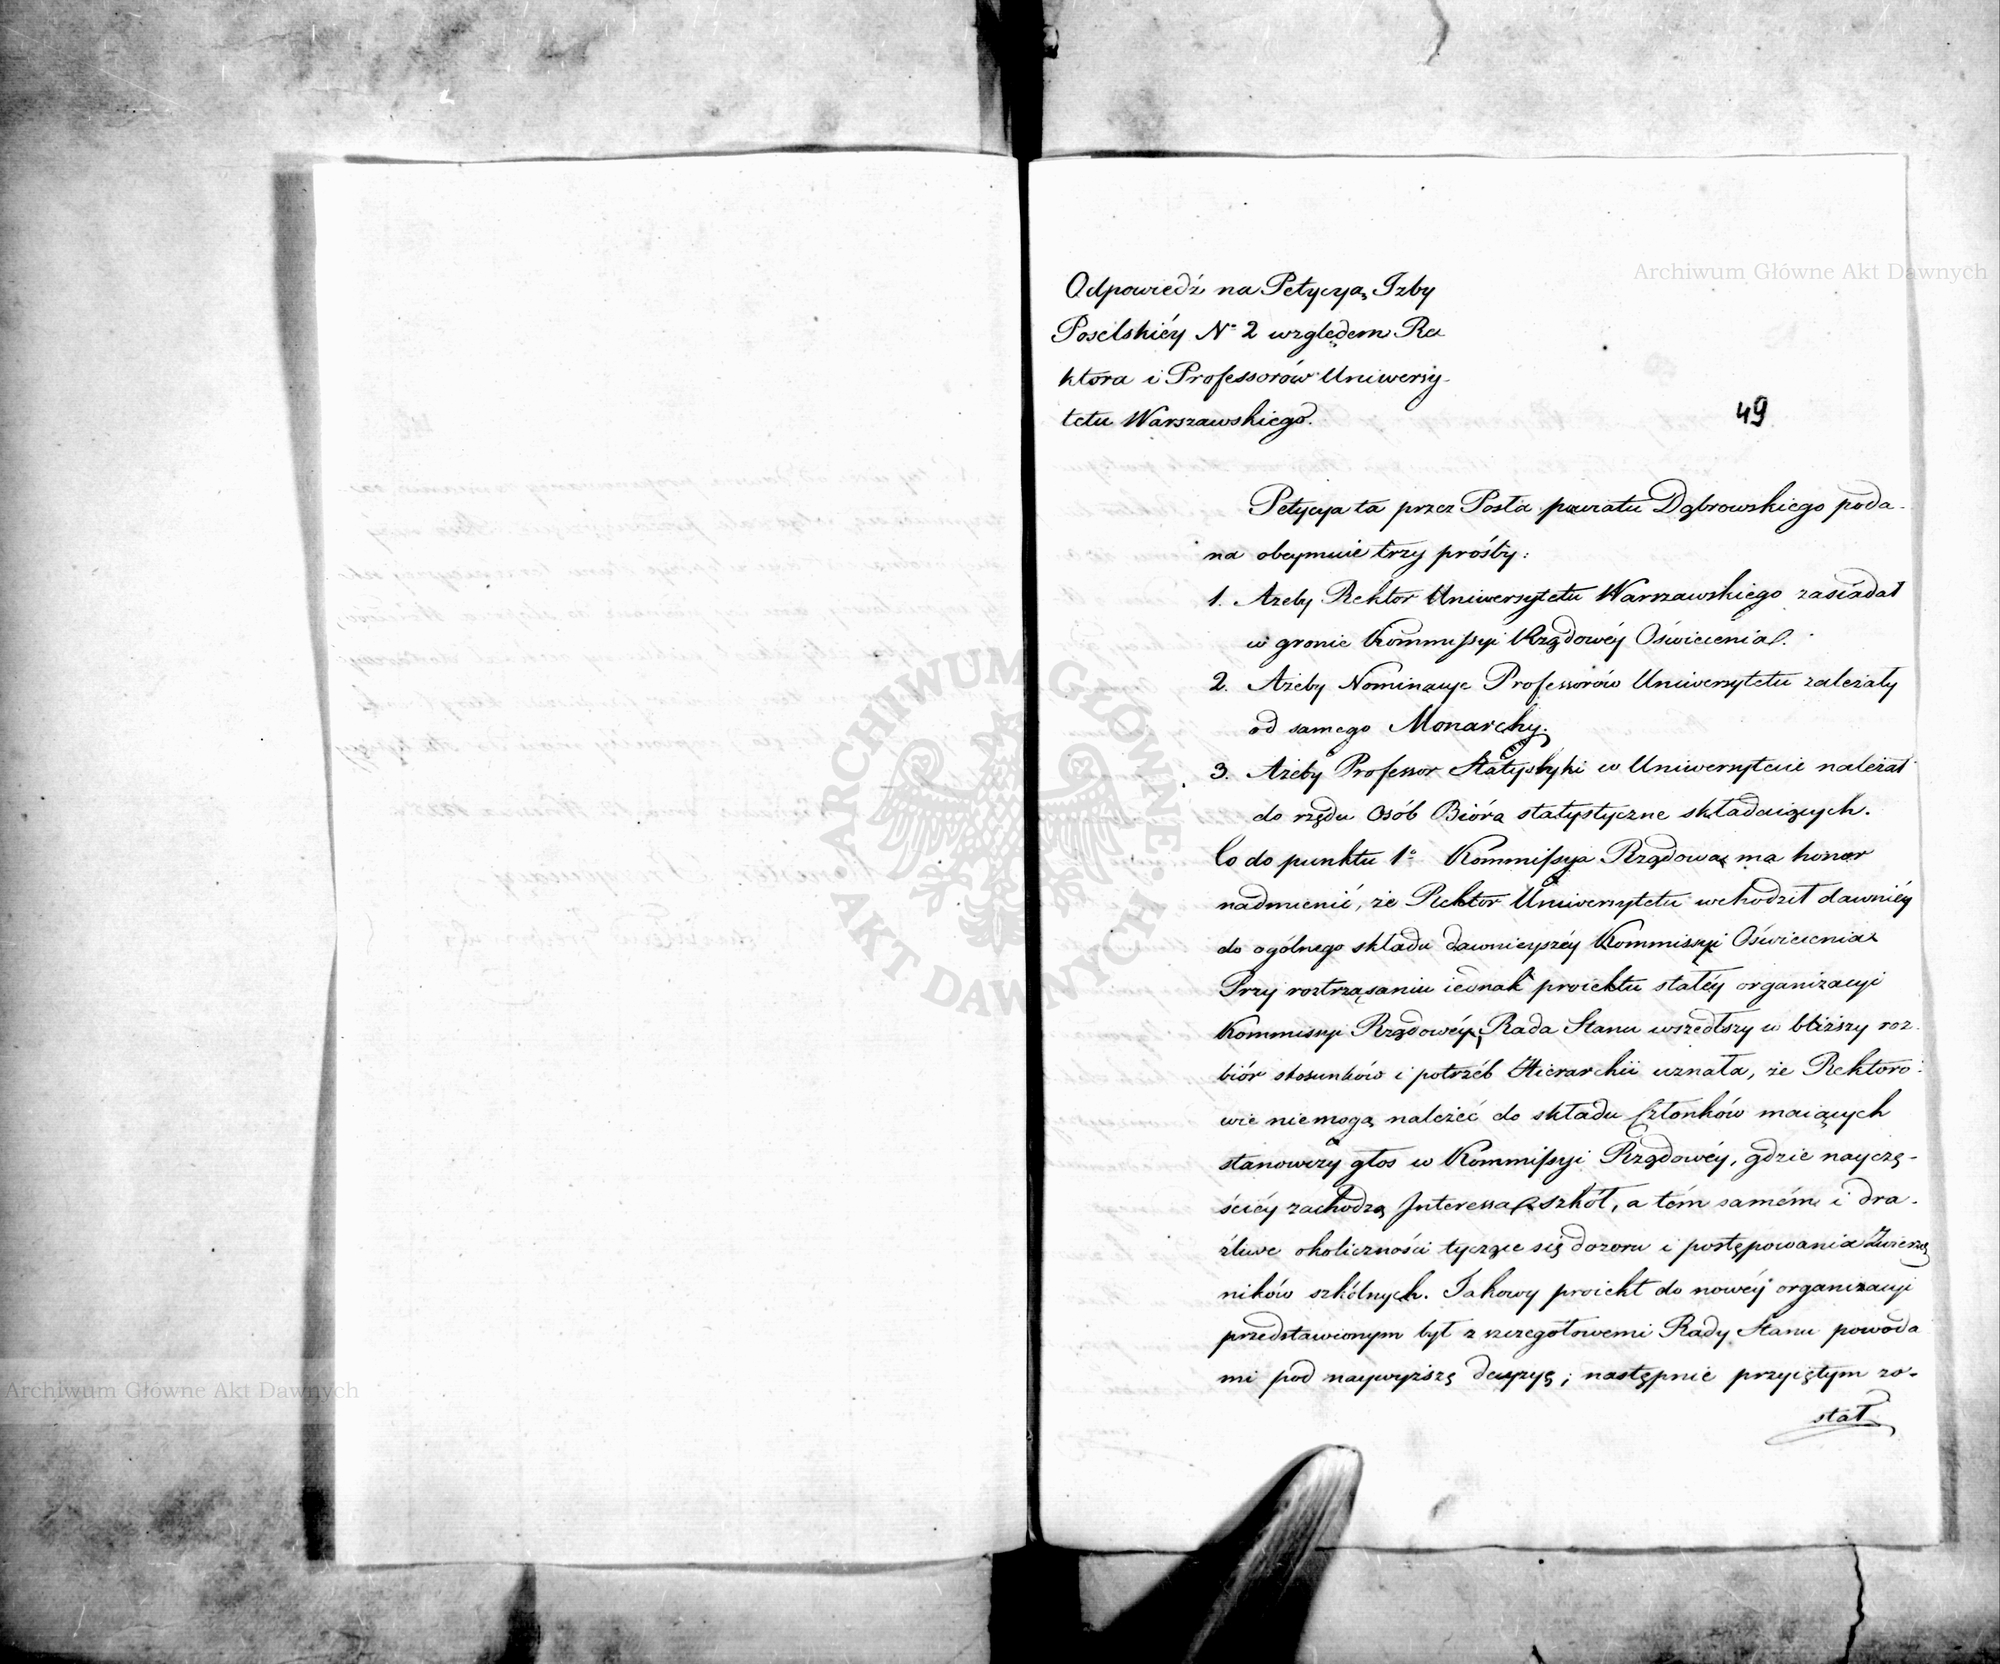 Odpowiedź na Petycyą Izby
Poselskiéy Nº 2 względem Re
ktora i Professorów Uniwersy-
tetu Warszawskiego.
49
Petycya ta przez Posła powiatu Dąbrowskiego poda-
na obeymuie trzy prośby:
1. Ażeby Rektor Uniwersytetu Warszawskiego zasiadał
w gronie Kommissyi Rządowéy Oświecenia.
2. Ażeby Nominacye Professorów Uniwersytetu zależały
od samego Monarchy.
3. Ażeby Professor Statystyki w Uniwersytecie należał
do rzędu Osób Bióra statystyczne składaiących.
Co do punktu 1º Kommissya Rządowa ma honor
nadmienić, że Rektor Uniwersytetu wchodził dawniéy
do ogólnego składu dawnieyszéy Kommissyi Oświecenia
Przy roztrząsaniu iednak proiektu stałéy organizacyi
Kommissyi Rządowéy, Rada Stanu wszedłszy w bliższy roz-
biór stosunków i potrzéb Hierarchii uznała, że Rektoro-
wie niemogą należéć do składu Członków maiących
stanowczy głos w Kommissyi Rządowéy, gdzie nayczę-
ściéy zachodzą Interessa szkół, a tém samém i dra-
żliwe okoliczności tyczące się dozoru i postępowania Zwierzch
ników szkólnych. Takowy proiekt do nowéy organizacyi
przedstawionym był z szczegółowemi Rady Stanu powoda
mi pod naywyższą decyzyę; następnie przyiętym zo-
stał
Archiwum Główne Akt Dawnych
Archiwum Główne Akt Dawnych
ARCHIWUM GŁÓWNE AKT DAWNYCH